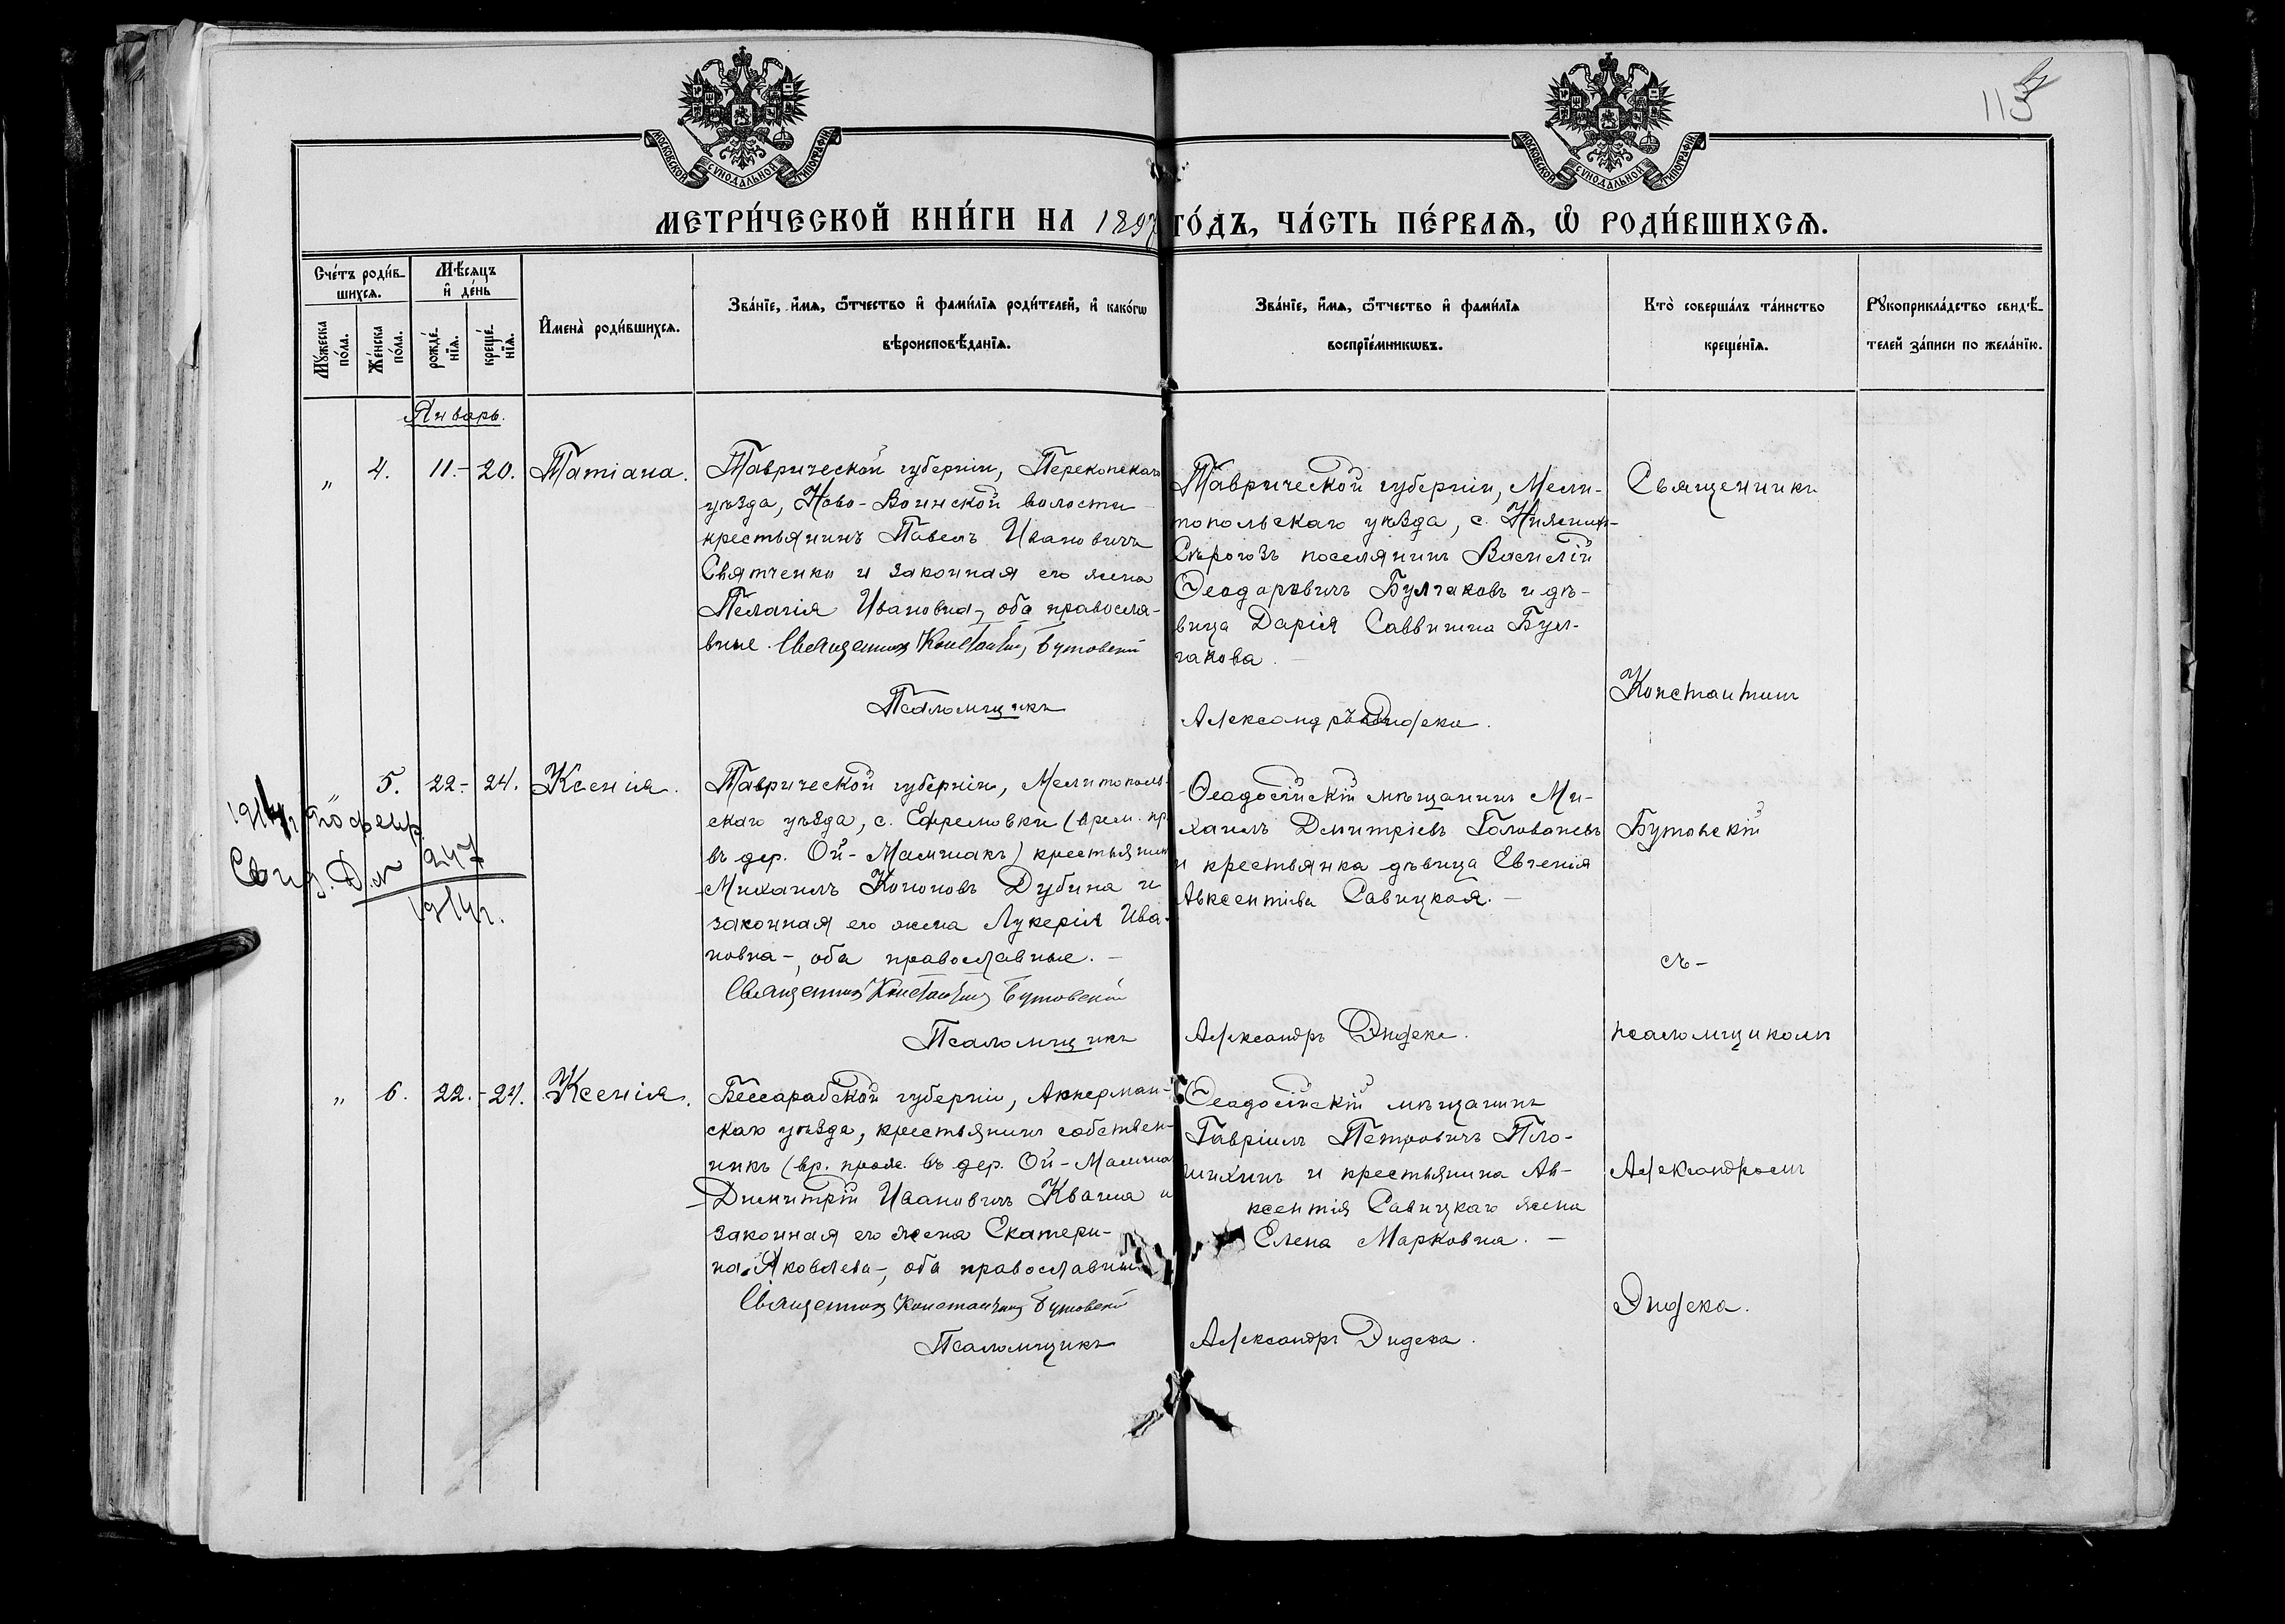 115
МОСКОВСКОЙ СѴНОДАЛЬНОЙ ТИПОГРАФІИ
МОСКОВСКОЙ СѴНОДАЛЬНОЙ ТИПОГРАФІИ
МЕТРИ́ЧЕСКОЙ КНИ́ГИ НА 1897 ГО́ДЪ, ЧА́СТЬ ПЕ́РВАѦ, Ѡ҆ РОДИ́ВШИХСѦ.
Сче́тъ роди́в-
шихсѧ.
Мꙋ́жеска
по́ла.
Же́нска
по́ла.
Мѣ́сѧцъ
и҆ де́нь
рожде́-
нїѧ.
креще́-
нїѧ.
И҆мена̀ роди́вшихсѧ.
Зва́нїе, и҆́мѧ, ѻ҆́тчество и҆ фами́лїѧ роди́телей, и҆ како́гѡ
вѣроисповѣ́данїѧ.
Зва́нїе, и҆́мѧ, ѻ҆́тчество и҆ фами́лїѧ
воспрїе́мникѡвъ.
Кто̀ соверша́лъ та́инство
креще́нїѧ.
Рꙋкоприкла́дство свидѣ́-
телей за́писи по жела́нїю.
Январь.
" 4. 11.- 20. Татіана.
Таврической губерніи, Перекопскаго
уѣзда, Ново-Воинской волости
крестьянинъ Павелъ Ивановичъ
Святченко и законная его жена
Пелагія Ивановна, оба правосла-
вные. Священникъ Константинъ Бутовскій
Псаломщикъ
Таврической губерніи, Мели-
топольскаго уѣзда, с. Нижнихъ-
Сѣрогозъ поселянинъ Василій
Ѳеодоровичъ Булгаковъ и дѣ-
вица Дарія Саввишна Бул-
гакова. -
Александръ Дидека.
Священникъ
Константинъ
" 5. 22.- 24. Ксенія.
1914 г. 10 февр.
Свид. Д. № 247
1914 г.
Таврической губерніи, Мелитополь-
скаго уѣзда, с. Ефремовки (врем. пр.
въ дер. Ой-Мамшакъ) крестьянинъ
Михаилъ Кононовъ Дубина и
законная его жена Лукерія Ива-
новна -, оба православные. -
Священникъ Константинъ Бутовскій
Псаломщикъ
Ѳеодосійскій мѣщанинъ Ми-
хаилъ Дмитріевъ Голованевъ
и крестьянка дѣвица Евгенія
Авксентіева Савицкая. -
Александръ Дидека.
Бутовскій
съ -
псаломщикомъ
" 6. 22.- 24. Ксенія.
Бессарабской губерніи, Аккерман-
скаго уѣзда, крестьянинъ собствен-
никъ (вр. прож. въ дер. Ой-Мамша
Димитрій Ивановичъ Квачка и
законная его жена Екатери-
на Яковлева -, оба православные
Священникъ Константинъ Бутовскій
Псаломщикъ
Ѳеодосійскій мѣщанинъ
Гавріилъ Петровичъ Пло-
шихинъ и крестьянина Ав-
ксентія Савицкаго жена
Елена Марковна. -
Александръ Дидека.
Александромъ
Дидека.